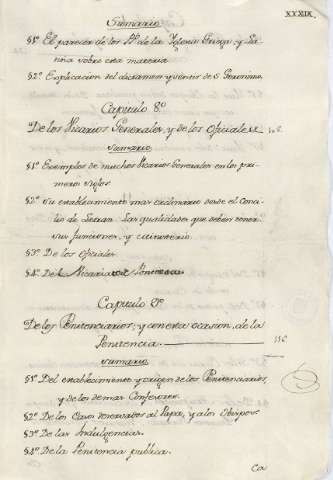 XXXIX
Sumario
§1º El parecer de los PP. de la Iglesia Griega, y La
tina sobre esta materia
§2º Explicacion del dictamen y sentir de S. Geronimo.
Capitulo 8º
De los Vicarios Generales, y de los Oficiales
Sumario
§1º Exemplos de muchos Vicarios Generales en los pri
meros siglos
§2º Su establecimiento mas ordinario desde el Conci
lio de Letran. Las qualidades que deben tener
sus funciones, y ministerio
§3º De los Oficiales
§4º De Vicarios
Capitulo 9º
De los Penitenciarios, y con esta ocasion, de la
Penitencia.
Sumario
§1º Del establecimiento y origen de los Penitenciarios,
y de los demas Confesores
§2º De los Casos reservados al Papa, y a los Obispos
§3º De las Indulgencias.
§4º De la Penitencia publica.
Ca